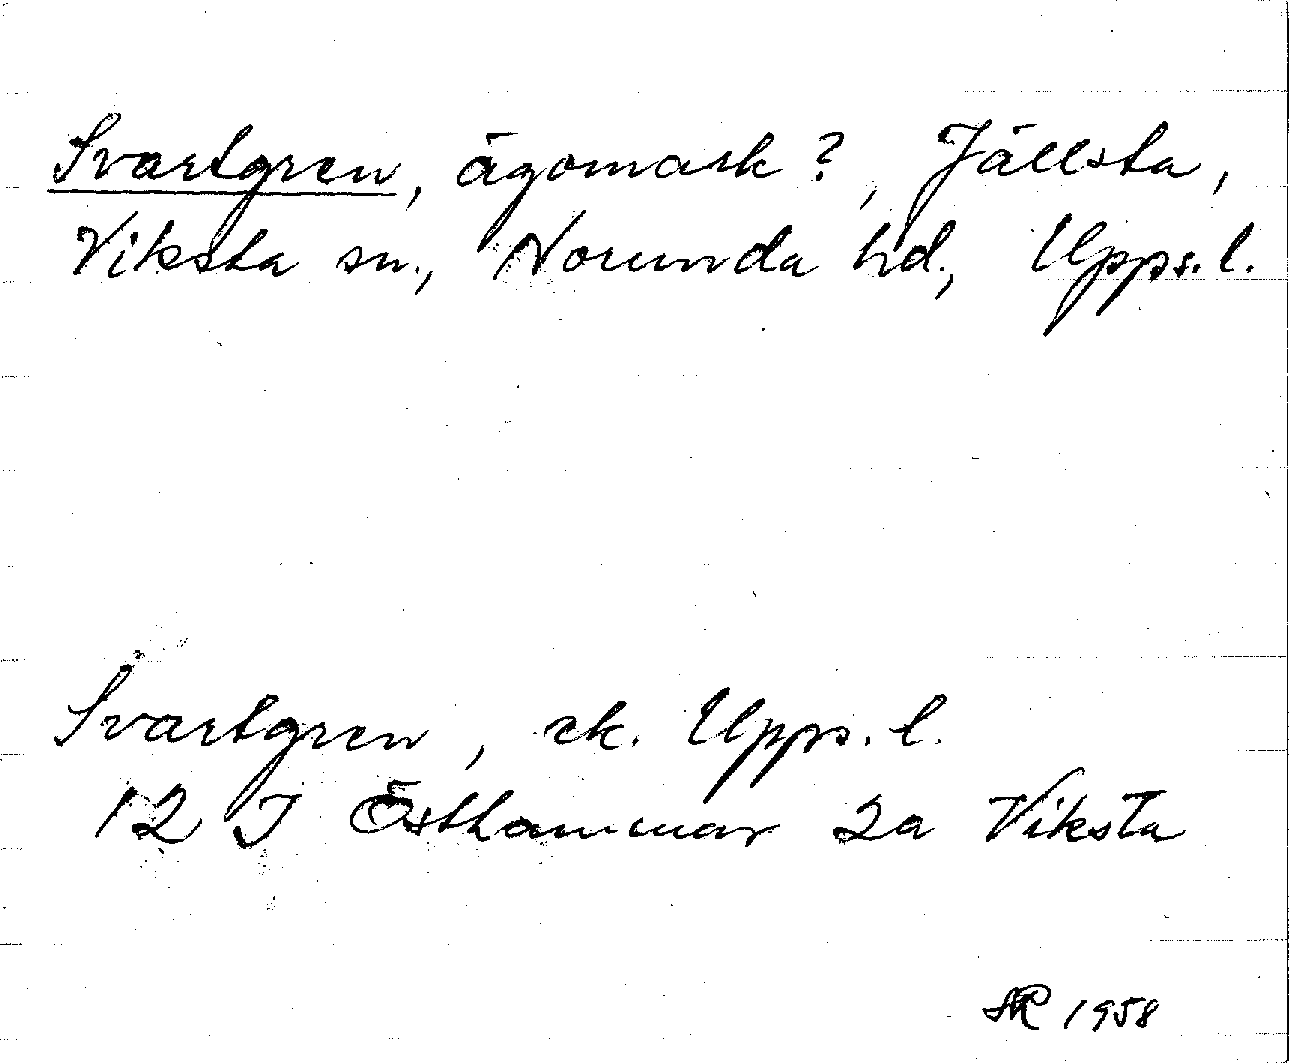 Svartgren, ägomark?, Jällsta,
Viksta sn., Norunda hd., Upps. l.
Svartgren, ek. Upps. l.
12 I Östhammar 2a Viksta
1958